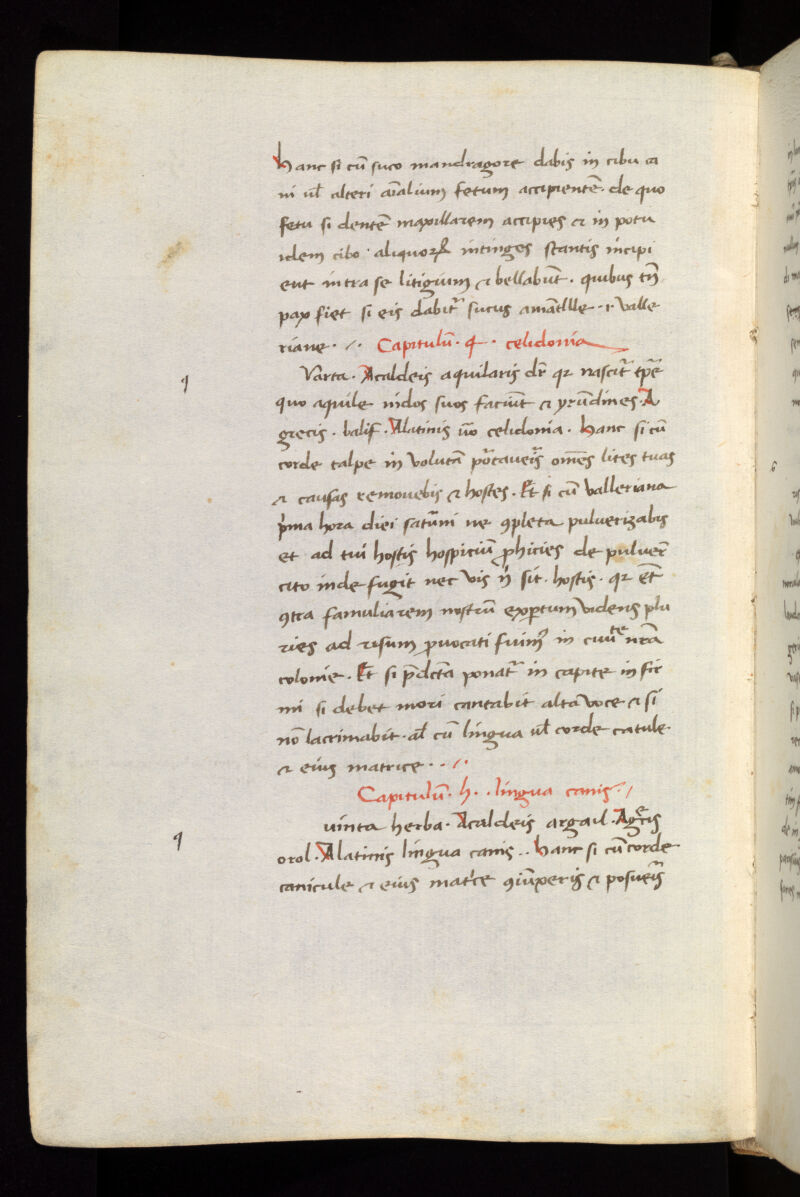 Hanc si cū suco mandragore dabis in cibu ca
ni ul̄ alteri aīalium fetum accipientē. de quo
fetu si dentē maxillarem accipies & in potu
idem cibo aliquorꝝ intinges stantis incipi
ent intra se litigium & bellabūt. quibus tn̄
pax fiet si eis dabit᷑ sucus
riane. Capitulū. 4. celidonia
Varta. Acaldeis aquilaris dr̄ qr nascit᷑ tp̄e
quo aquile nidos suos faciūt & yrūdines. A
grecis. balif. Alatinis ūo celidonia. Hanc si cū
corde talpe in volutā portaueris om̄es lites tuas
& causas remouebis & hostes. Et si cū valleriana
p̄ma hora diei saturni ne ꝯpleta puluerizabis
et ad tui hostis hospitiū prohicies de puluere
cito inde fugit nec vis n̄ sit. hostis. qr et̄
ꝯtra famuliarem nostrū expertum videns plu
ries ad risum prouocati fuim᷒ in ciuitate nr̄a
colonie. Et si p̄dc̄ta ponat᷑ in capite in fir
mi si debet mori cantabit alta voce & si
nō lacrimabit. al̄ cū lingua ul̄ corde catule
& eius matrice.
Capitulū. h. lingua canis
uinta herba. Acaldeis argail. Agrecis
orol. Alatinis lingua canis.. Hanc si cū corde
canicule & eius matrice ꝯiūxeris & posueris
q
q